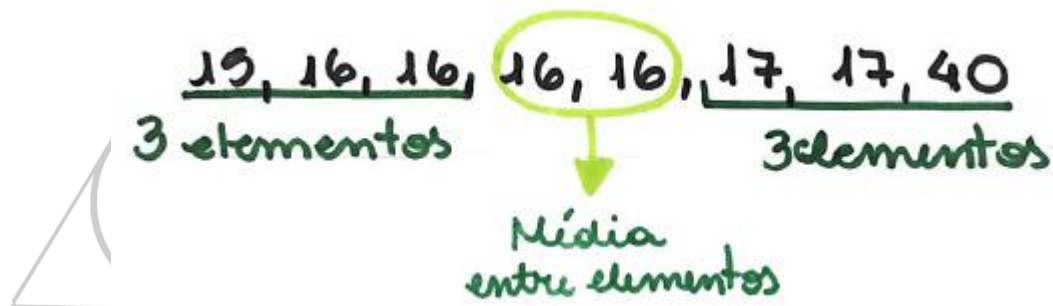 15, 16, 16, 16, 16, 17, 17, 40
3 elementos 3 elementos
Média
entre elementos